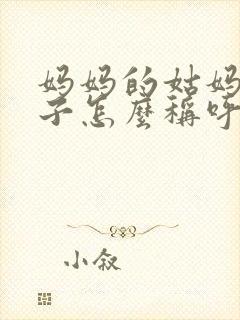 妈妈的姑妈
子怎麼稱呼
小叙